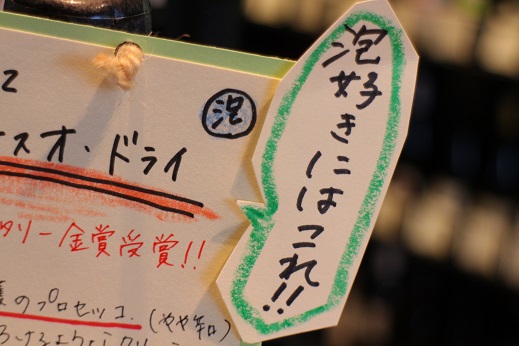 泡好きにはこれ!!
泡
スオ・ドライ
タリー金賞受賞!!
のプロセッコ.